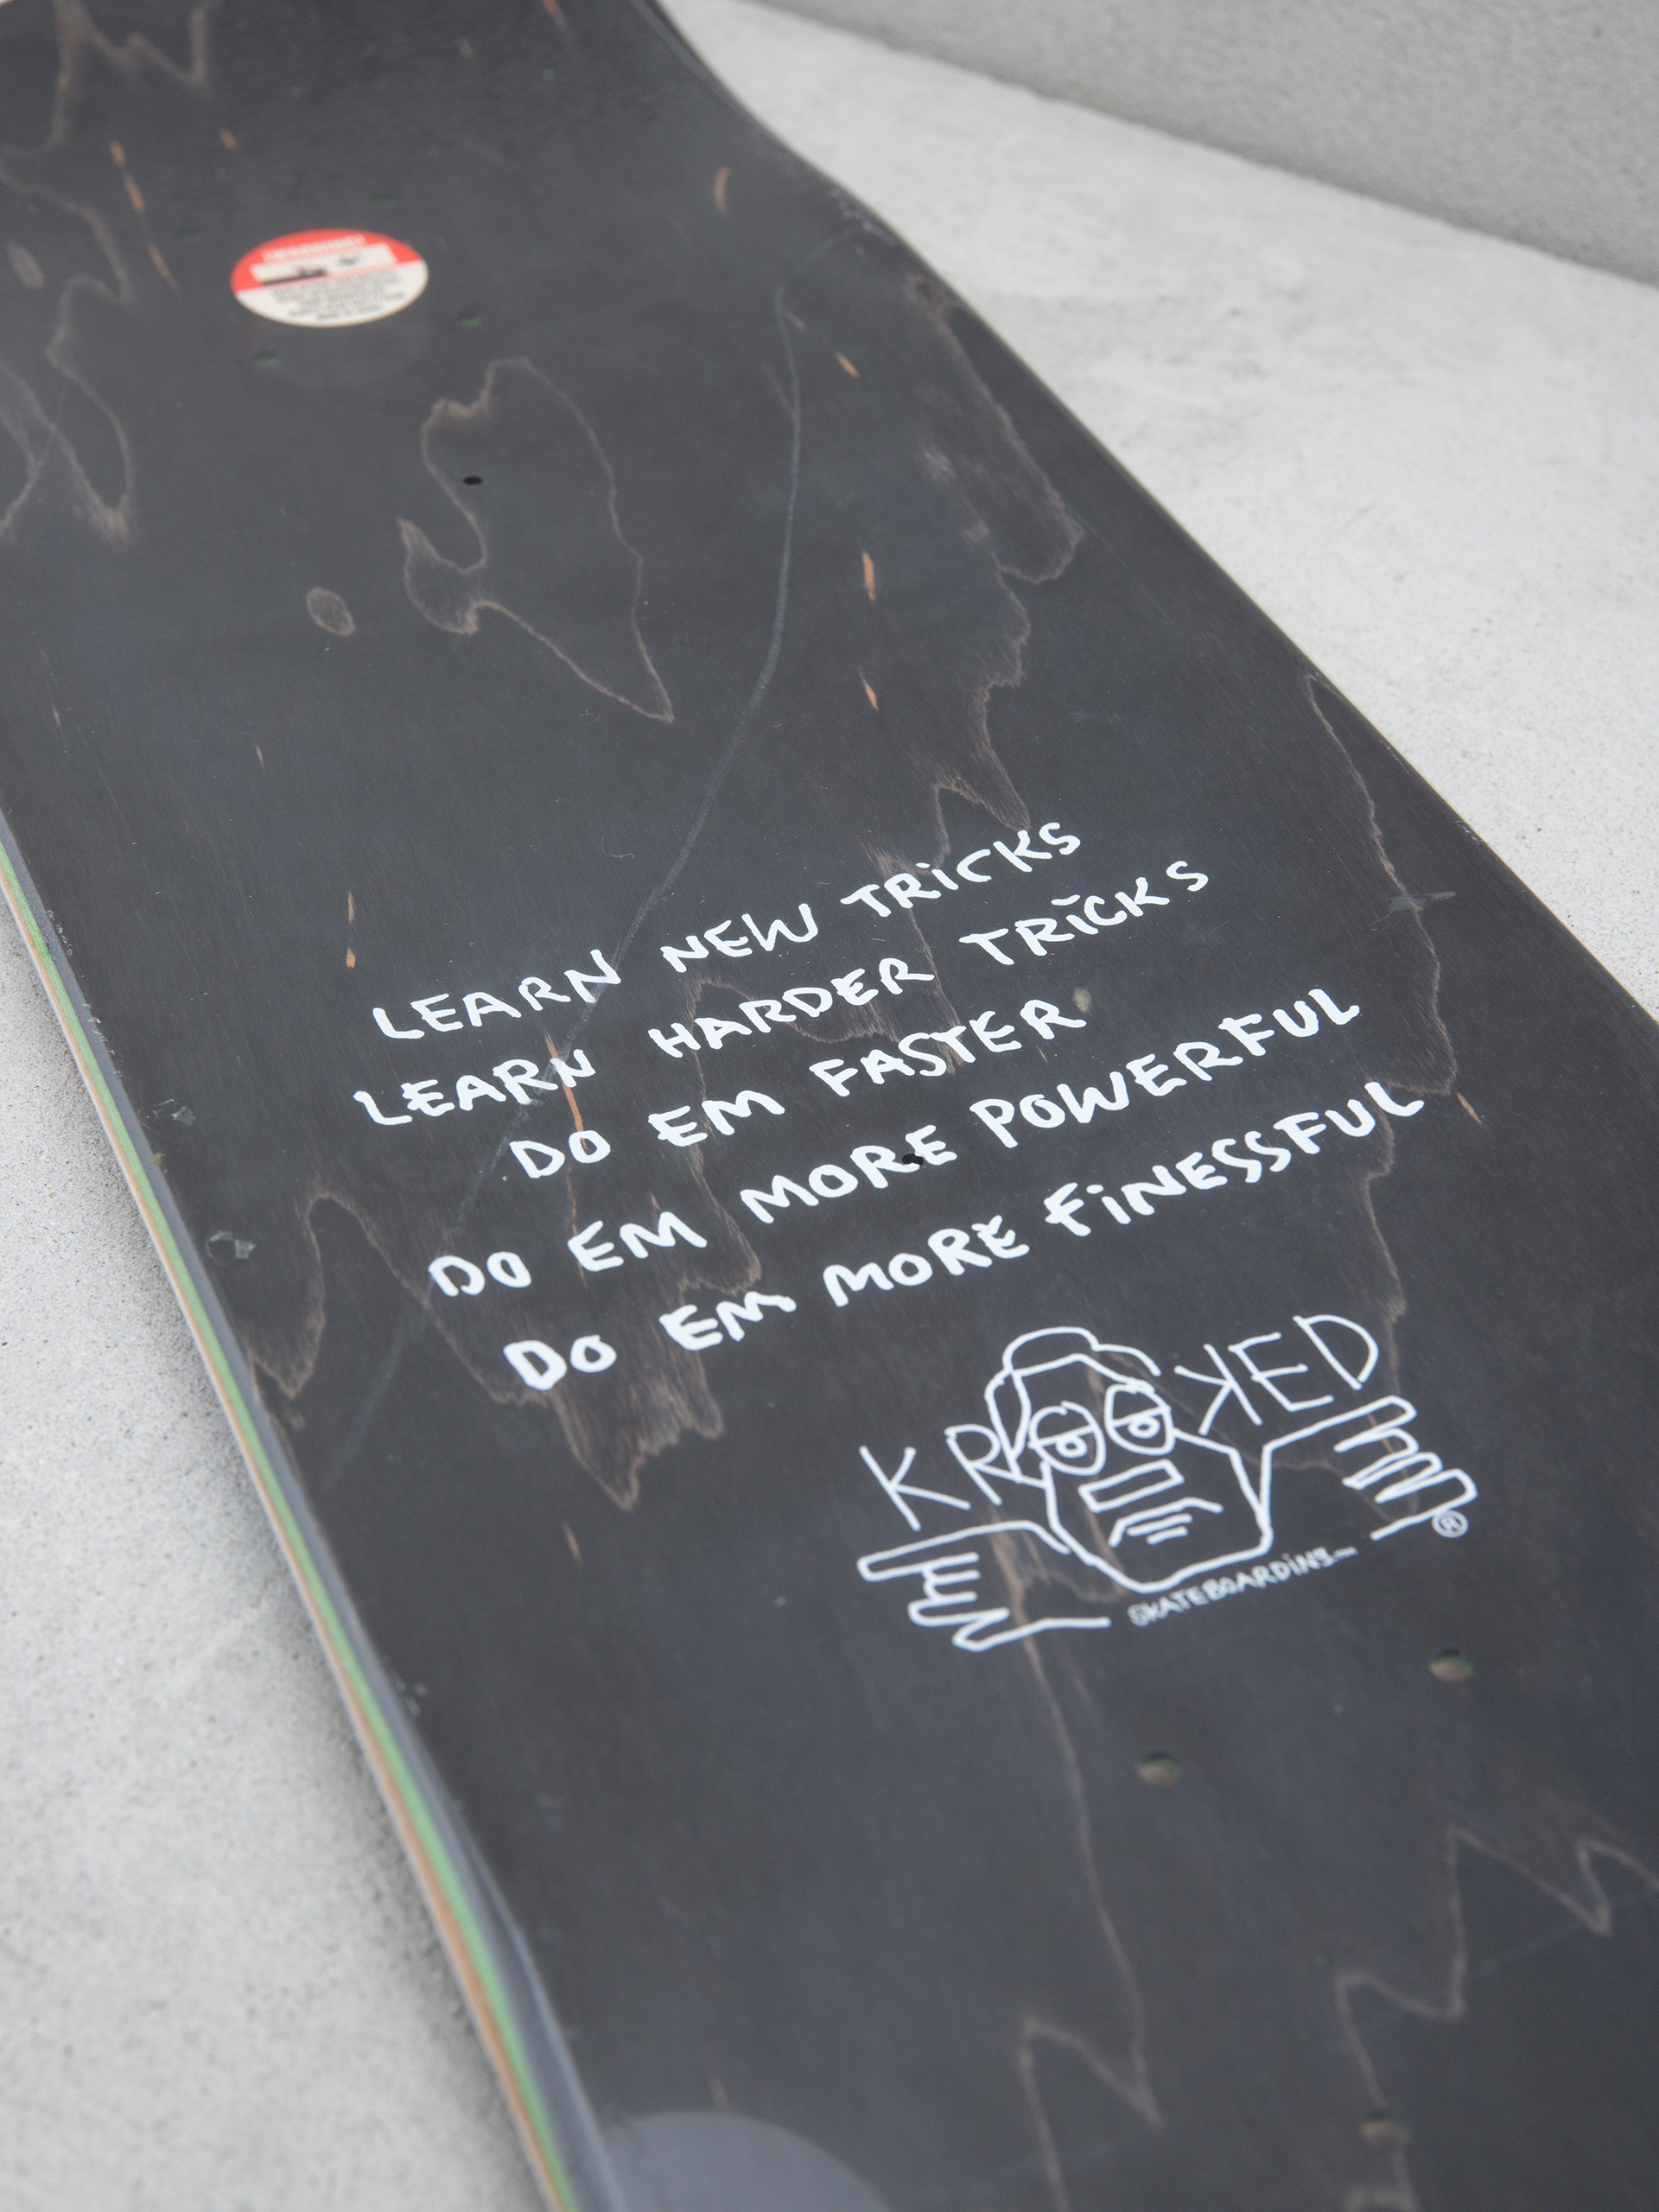 LEARN NEW TRiCKS
LEARN HARDER TRiCKS
DO EM FASTER
DO EM MORE POWERFUL
DO EM MORE FiNESSFUL
KROOKED
SKATEBOARDiNG™
®